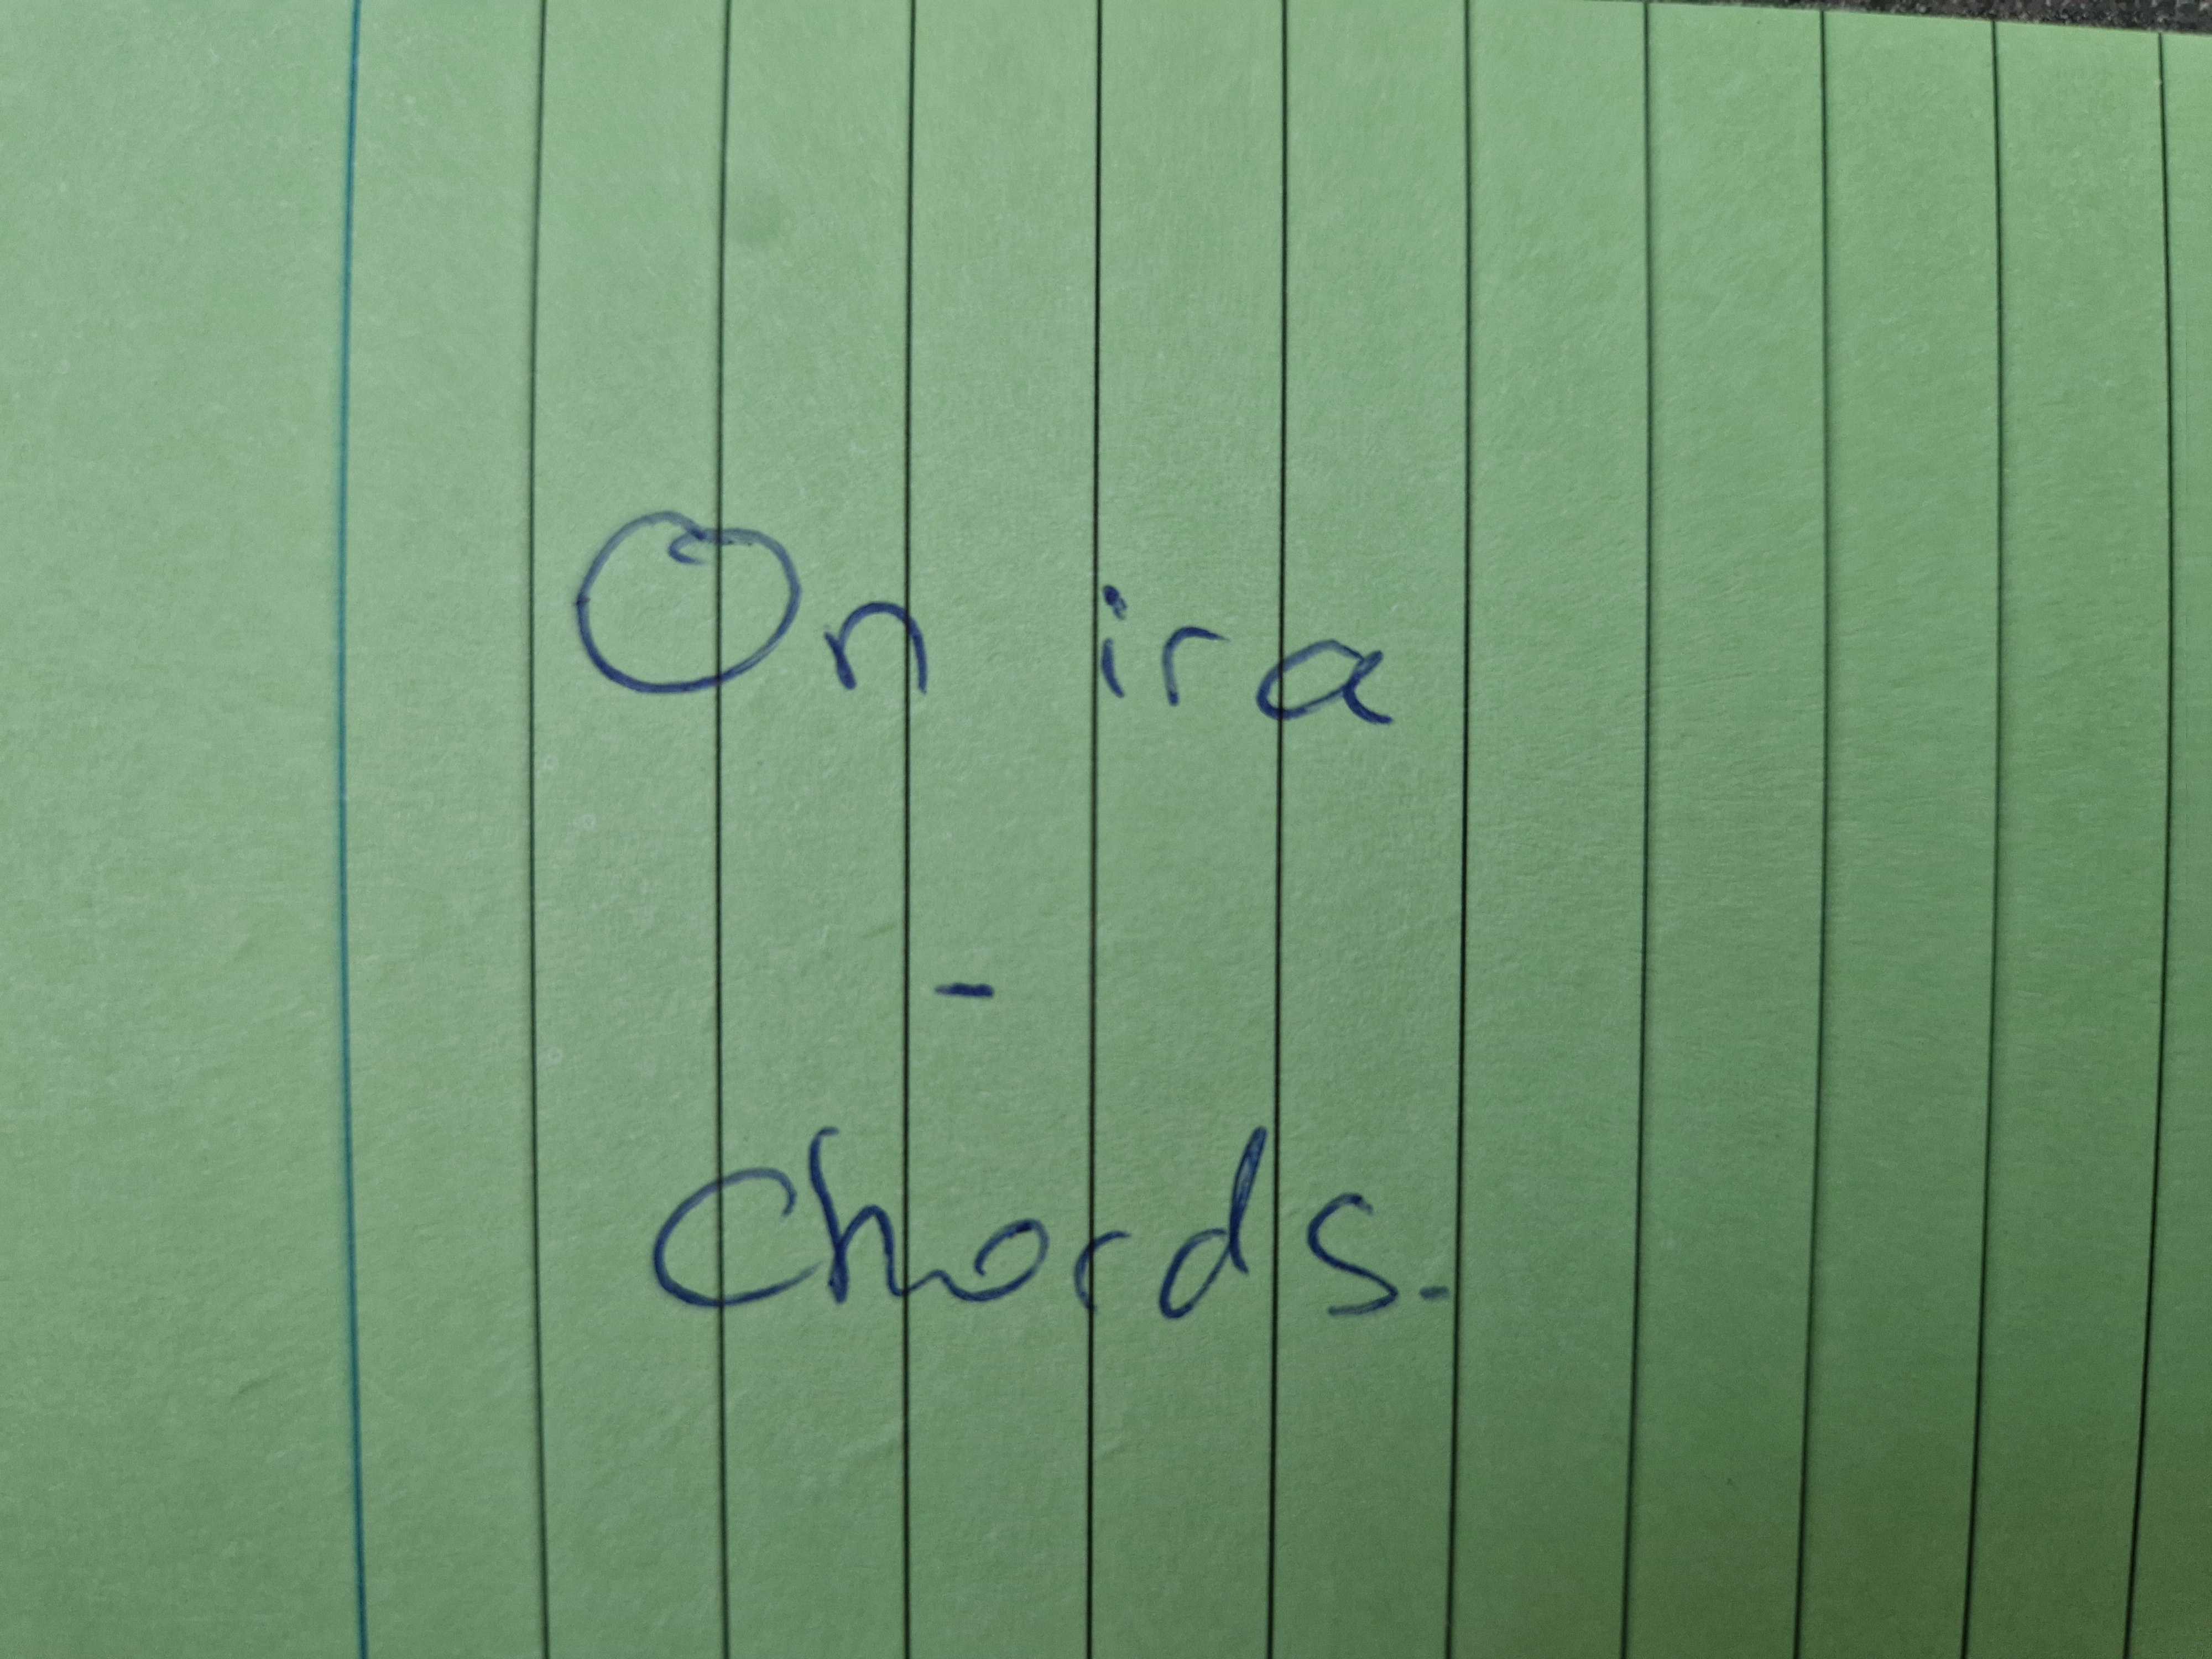 On ira
-
Chords.